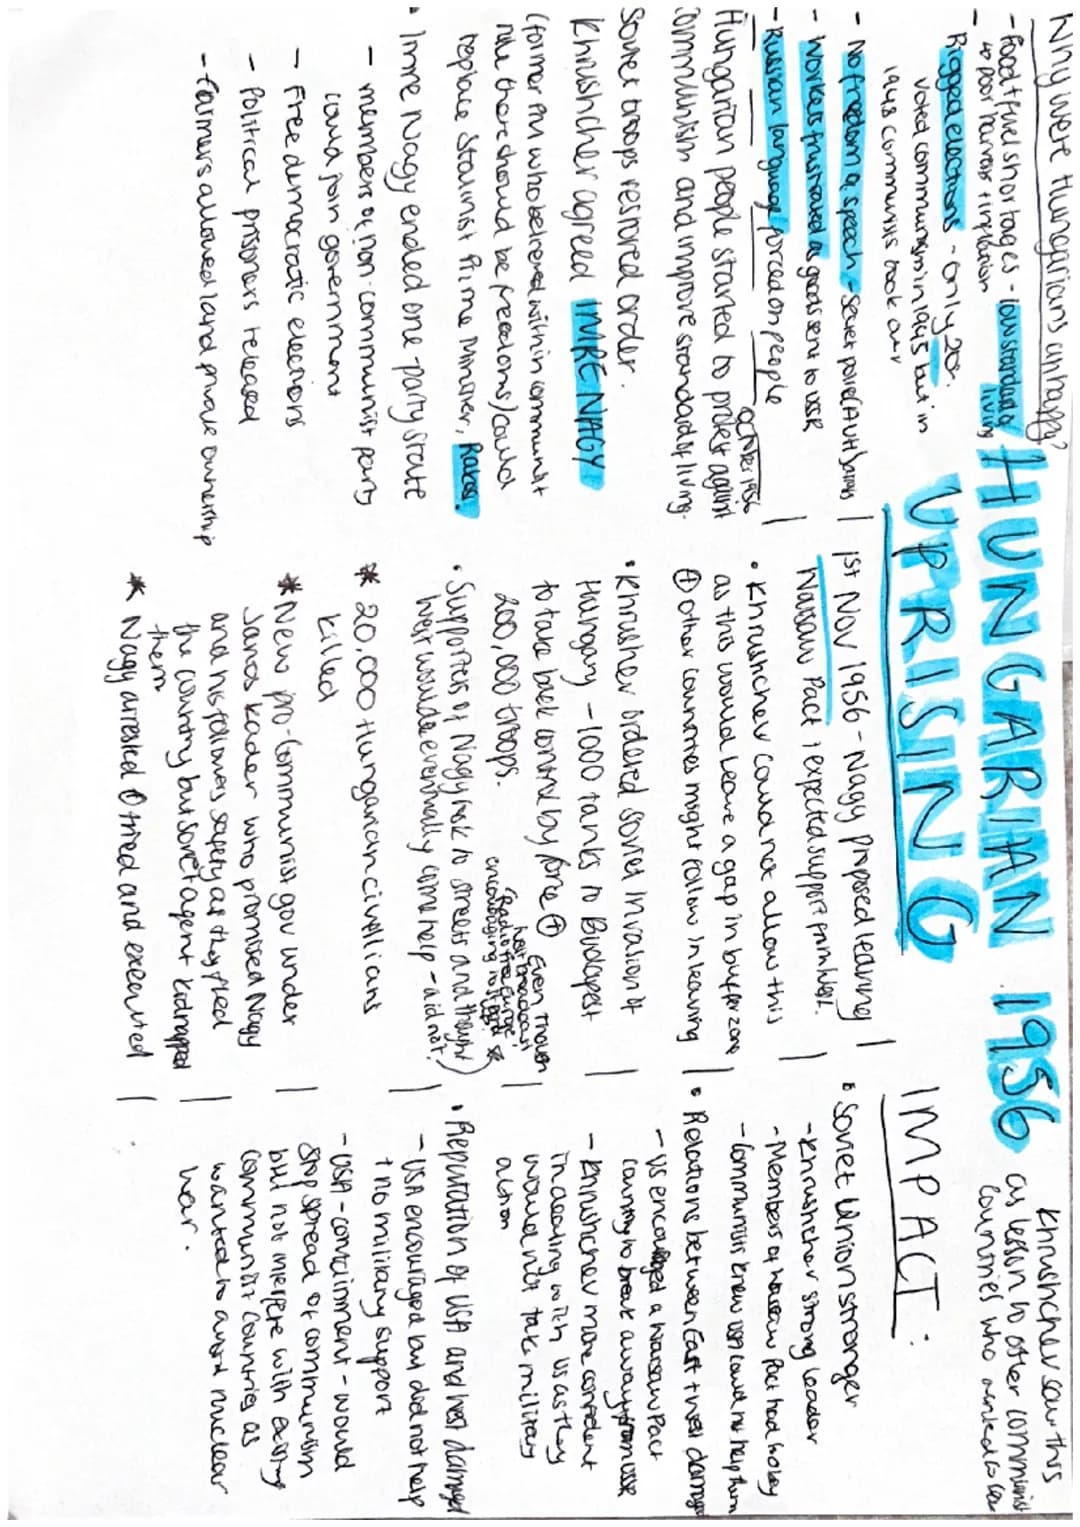 HUNGARIAN 1956
UPRISING
Khrushchev saw this
as lesson to other communist
countries who wanted to leave
Why were Hungarians unhappy?
- Food + fuel shortages - low standard of living
to poor harvests + inflation
- Rigged elections - only 20%
voted communism in 1945 but in
1948 communists took over
- No freedom of speech - secret police (AVH) spies
- Workers frustrated as goods sent to USSR
- Russian language forced on people
october 1956
Hungarian people started to protest against
communism and improve standard of living.
Soviet troops restored order.
Khrushchev agreed IMRE NAGY
(former PM who believed within communist
rule there should be freedoms) could
replace Stalinist Prime Minister, Rakosi.
• Imre Nagy ended one-party state
- members of non-communist party
could join government
- Free democratic elections
- Political prisoners released
- Farmers allowed land private ownership
1st Nov 1956 - Nagy proposed leaving
Warsaw Pact, expected support from West.
• Khrushchev could not allow this
as this would leave a gap in buffer zone
+ other countries might follow in leaving
• Khrusher ordered soviet invasion of
Hungary - 1000 tanks to Budapest
to take back control by force +
200,000 troops.
Even though
West broadcast
Radio Free Europe
encouraging to
• Supporters of Nagy took to streets and thought
West would eventually come help - did not!
* 20,000 Hungarian civilians
killed
* New pro-Communist gov under
Janos Kadar who promised Nagy
and his followers safety as they fled
the country but soviet agent kidnapped
them
* Nagy arrested + tried and executed
IMPACT:
• Soviet Union stronger
- Khrushchev strong leader
- Members of Warsaw Pact had to obey
- Communists knew USA could not help them
• Relations between East + West damaged
- US encouraged a Warsaw Pact
country to break away from USSR
- Khrushchev more confident
in dealing with US as they
would not take military
action
• Reputation of USA and West damaged
- USA encouraged but did not help
+ no military support
- USA - containment - would
stop spread of communism
but not interfere with existing
communist countries as
wanted to avoid nuclear
war.